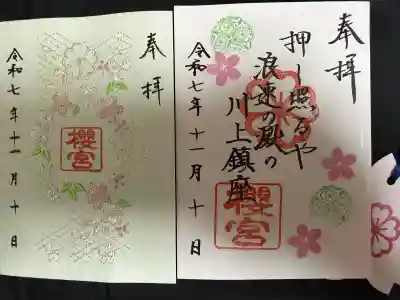 奉拝
櫻宮
令和七年十一月十日
奉拝
押し照るや
浪速の夙の
川上鎮座
櫻宮
令和七年十一月十日